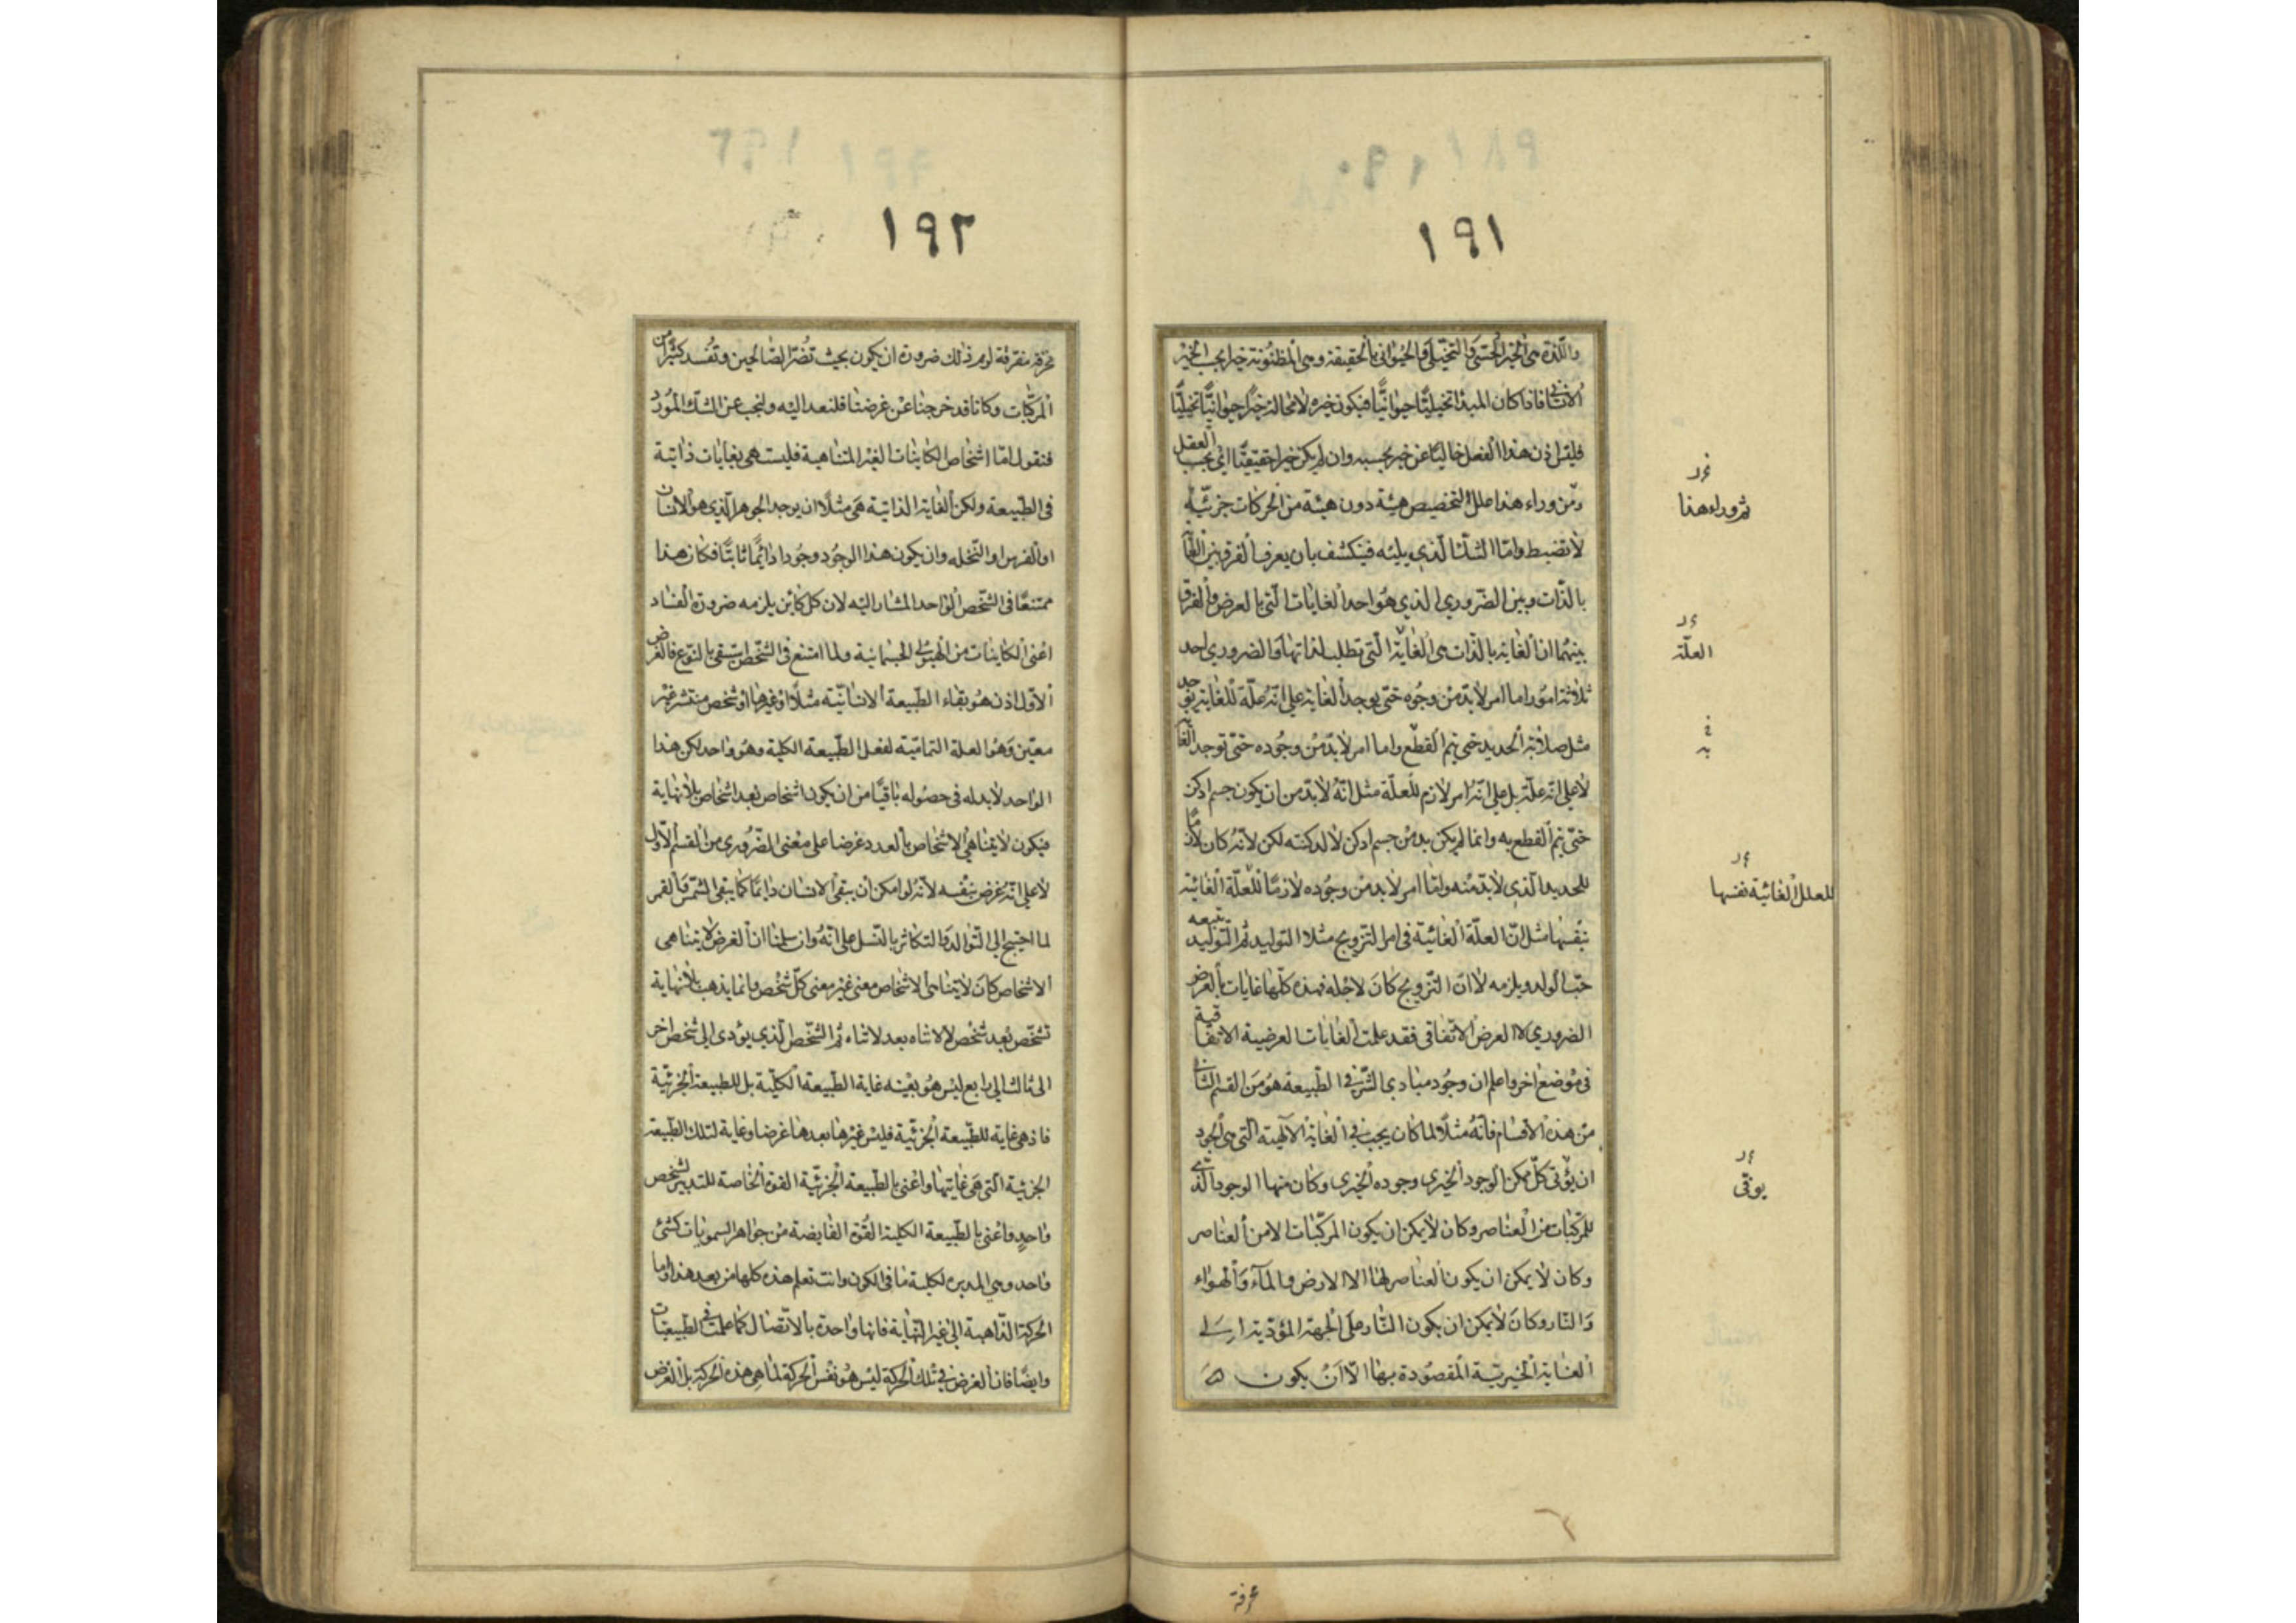 ١٩١
واللّذة هى الخير الحسّى والتخيّلى والحيوانى بالحقيقة وهى المظنونة خيرا بحسب الخير
الانسانى فاذا كان المبدأ تخيليّا حيوانيّا فيكون خيره لامحالة خيرًا حيوانيّا تخيليّا
فليس اذن هذا الفعل خاليًا عن خير بحسبه وان لم يكن خيرا حقيقيّا اى بحسب العقل
ومن وراء هذا علل لتخصيص هيئة دون هيئة من الحركات جزئيّة
لا تضبط وامّا الشكّ الّذى يليه فينكشف بان يعرف الفرق بين الغاية
بالذّات وبين الضّرورى الذى هو احد الغايات الّتى بالعرض والفرق
بينهما ان الغاية بالذّات هى الغاية الّتى تطلب لذاتها والضرورى احد
ثلاثة امور اما امر لابدّ من وجوده حتى يوجد الغاية على انّه علّة للغاية بوجه
مثل صلابة الحديد حتى يتم القطع واما امر لابدّ من وجوده حتّى توجد الغاية
لا على انّه علّة بل على انّه امر لازم للعلّة مثل انّه لابدّ من ان يكون جسم ادكن
حتّى يتم القطع به وانما لم يكن بد من جسم ادكن لا لدكنته لكن لانّه كان لازمًا
للحديد الّذى لابدّ منه وامّا امر لابد من وجوده لازمًا للعلّة الغائية
نفسها مثل انّ العلّة الغائيّة فى امر التّزويج مثلا التوليد ثم التّوليد يتبعه
حبّ الولد ويلزمه لا انّ التّزويج كان لاجله فهذه كلّها غايات بالعرض
الضرورى لا العرض الاتّفاقى فقد علمت الغايات العرضية الاتفاقية
فى موضع اخر واعلم ان وجود مبادى الشّر فى الطّبيعة هو من القسم الثانى
من هذه الاقسام فانّه مثلًا لما كان يجب فى الغاية الالهية الّتى هى الجود
ان يؤتى كلّ ممكن الوجود الخيرى وجوده الخيرى وكان منها الوجود الّذى
للمركّبات من العناصر وكان لا يمكن ان يكون المركّبات الا من العناصر
وكان لا يمكن ان يكون العناصر لها الا الارض والماء والهواء
والنّار وكان لا يمكن ان يكون النّار على الجهة المؤدّية الى
الغاية الخيريّة المقصودة بها الّا ان يكون
ثم وراء هذا
العلّة
يه
للعلل الغائيّة نفسها
يوتى
٣
محرقة
١٩٢
محرقة مفرقة لزم ذلك ضرورة ان يكون بحيث تضرّ الصّالحين وتفسد كثيرًا من
المركّبات وكانا قد خرجنا عن غرضنا فلنعد اليه ولنجب عن الشكّ المورد
فنقول امّا اشخاص الكاينات الغير المتناهية فليست هى بغايات ذاتية
فى الطّبيعة ولكن الغاية الذاتية هى مثلًا ان يوجد الجوهر الّذى هو الانسان
او الفرس او النّخله وان يكون هذا الوجود وجودا دائمًا ثابتًا فكان هذا
ممتنعًا فى الشّخص الواحد المشار اليه لان كل كاين يلزمه ضرورة الفساد
اعنى الكاينات من الهيولى الجسمانية ولما امتنع فى الشّخص استبقى بالنّوع فالغرض
الاوّل اذن هو بقاء الطّبيعة الانسانيّة مثلًا او غيرها او شخص منتشر غير
معيّن وهو العلة التماميّة لفعل الطّبيعة الكلية وهو واحد لكن هذا
الواحد لابد له فى حصوله باقيًا من ان يكون اشخاص بعد اشخاص بلا نهاية
فيكون لا يتناهى الاشخاص بالعدد غرضا على معنى الضّرورى من القسم الاوّل
لا على انّه غرض بنفسه لانّه لو امكن ان يبقى الانسان دايمًا كما يبقى الشّمس والقمر
لما احتيج الى التّوالد والتكاثر بالنّسل على انّه وان سلمنا ان الغرض لا يتناهى
الاشخاص كان لا يتناهى الاشخاص معنى غير معنى كلّ شخص وانما يذهب بلا نهاية
شخص بعد شخص لا لا تناه بعد لا تناه ثم الشّخص الّذى يؤدى الى شخص اخر
الى ثالث الى رابع ليس هو بعينه غاية الطّبيعة الكلّية بل للطبيعة الجزئيّة
فاذ هى غاية للطّبيعة الجزئيّة فليس غيرها بعدها غرضا وغاية لتلك الطّبيعة
الجزئية الّتى هى غايتها واعنى بالطّبيعة الجزئيّة القوة الخاصة للتدبير لشخص
واحد واعنى بالطّبيعة الكلية القوّة الفايضة من جواهر السمويات كشئ
واحد وهى المدبره لكلية ما فى الكون وانت تعلم هذه كلها من بعد هذا واما
الحركة الذّاهبة الى غير النّهاية فانها واحدة بالاتّصال كما علمت فى الطّبيعيّات
وايضًا فان الغرض فى تلك الحركة ليس هو نفس الحركة لما هى هذه الحركة بل الغرض